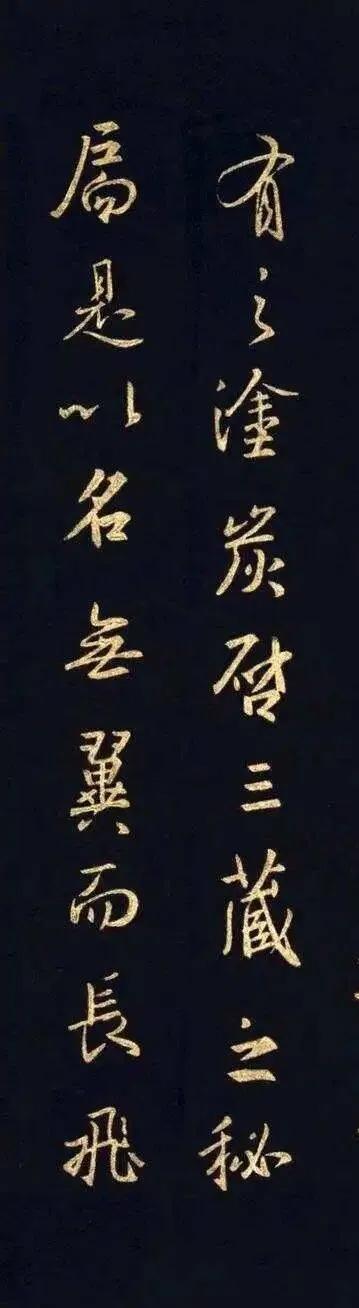 有之塗炭啓三藏之秘
扄是以名無翼而長飛